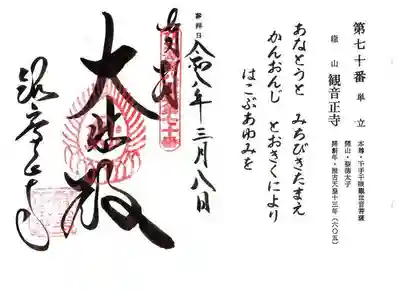 第七十番 単立
本尊・千手千眼観世音菩薩
開山・聖徳太子
開創年・推古天皇十三年(六〇五)
繖山 観音正寺
あなとうと みちびきたまえ
かんおんじ とおきくにより
はこぶあゆみを
参拝日
令和八年三月八日
奉拝
大悲殿
観音正寺